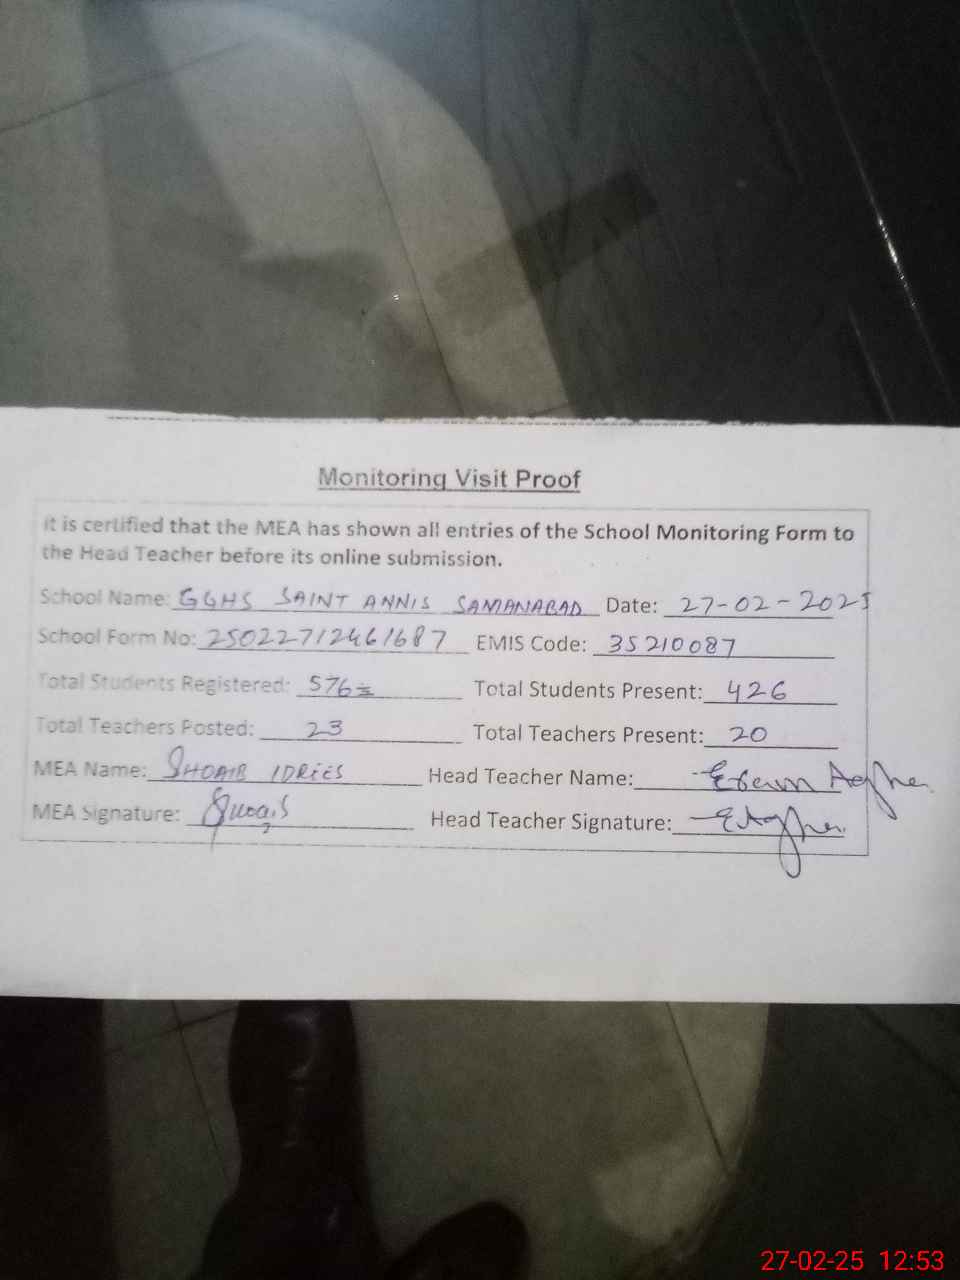 Monitoring Visit Proof
it is certified that the MEA has shown all entries of the School Monitoring Form to
the Head Teacher before its online submission.
School Name: GGHS SAINT ANNIS SAMANABAD Date: 27-02-2025
School Form No: 25022712461687 EMIS Code: 35210087
Total Students Registered: 576= Total Students Present: 426
Total Teachers Posted: 23 Total Teachers Present: 20
MEA Name: SHOAIB IDREES Head Teacher Name:
MEA Signature: Shoaib Head Teacher Signature:
27-02-25 12:53